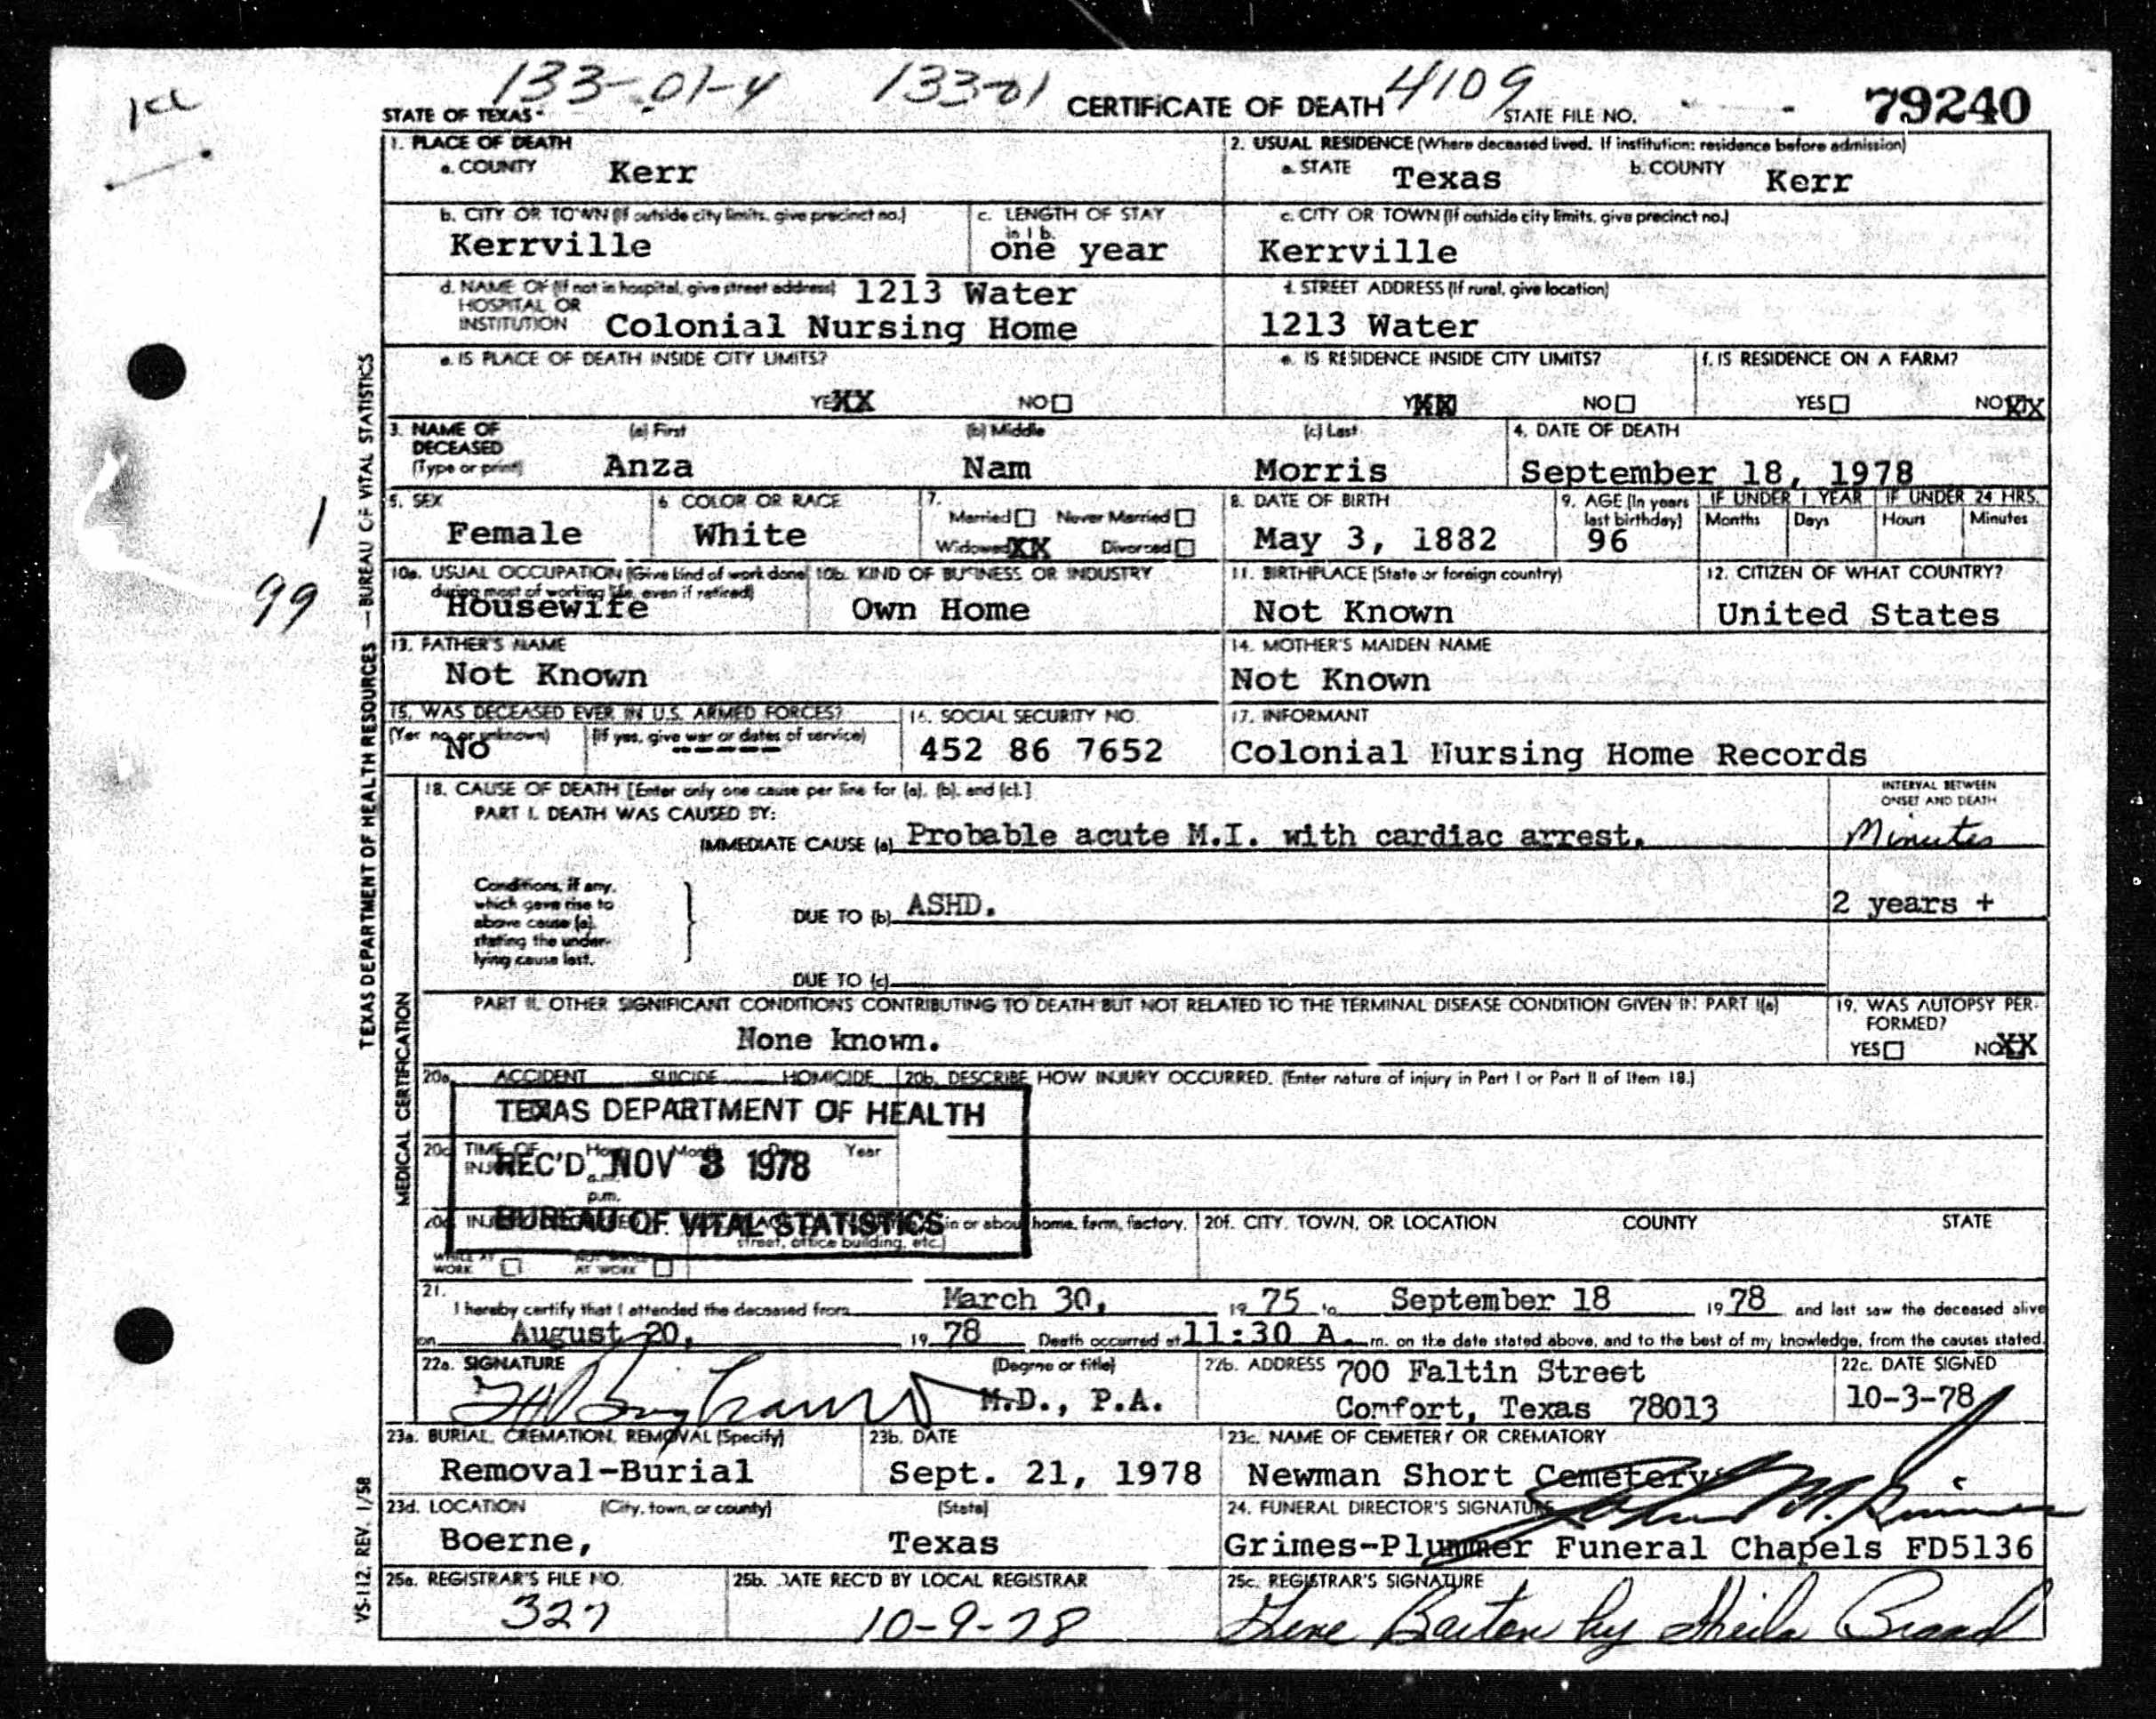 133-01-4 133-01 4109
STATE OF TEXAS CERTIFICATE OF DEATH STATE FILE NO. 79240
1. PLACE OF DEATH
a. COUNTY Kerr
2. USUAL RESIDENCE (Where deceased lived. If institution: residence before admission)
a. STATE Texas b. COUNTY Kerr
b. CITY OR TOWN (If outside city limits, give precinct no.)
Kerrville
c. LENGTH OF STAY
in 1 b.
one year
c. CITY OR TOWN (If outside city limits, give precinct no.)
Kerrville
d. NAME OF (If not in hospital, give street address) 1213 Water
HOSPITAL OR
INSTITUTION Colonial Nursing Home
d. STREET ADDRESS (If rural, give location)
1213 Water
e. IS PLACE OF DEATH INSIDE CITY LIMITS?
YEXX NO
e. IS RESIDENCE INSIDE CITY LIMITS?
YXX NO
f. IS RESIDENCE ON A FARM?
YES NOXX
3. NAME OF
DECEASED
(Type or print)
(a) First (b) Middle (c) Last
Anza Nam Morris
4. DATE OF DEATH
September 18, 1978
5. SEX
Female
6 COLOR OR RACE
White
7.
Married Never Married
WidowedXX Divorced
8. DATE OF BIRTH
May 3, 1882
9. AGE (In years
last birthday)
96
IF UNDER 1 YEAR IF UNDER 24 HRS.
Months Days Hours Minutes
1
99
10a. USUAL OCCUPATION (Give kind of work done
during most of working life, even if retired)
Housewife
10b. KIND OF BUSINESS OR INDUSTRY
Own Home
11. BIRTHPLACE (State or foreign country)
Not Known
12. CITIZEN OF WHAT COUNTRY?
United States
13. FATHER'S NAME
Not Known
14. MOTHER'S MAIDEN NAME
Not Known
15. WAS DECEASED EVER IN U.S. ARMED FORCES?
(Yes no, or unknown) (If yes, give war or dates of service)
No ------
16. SOCIAL SECURITY NO.
452 86 7652
17. INFORMANT
Colonial Nursing Home Records
18. CAUSE OF DEATH [Enter only one cause per line for (a), (b), and (c).]
PART I. DEATH WAS CAUSED BY:
IMMEDIATE CAUSE (a) Probable acute M.I. with cardiac arrest.
INTERVAL BETWEEN
ONSET AND DEATH
Minutes
Conditions, if any,
which gave rise to
above cause (a),
stating the under-
lying cause last.
DUE TO (b) ASHD.
2 years +
DUE TO (c)
PART II. OTHER SIGNIFICANT CONDITIONS CONTRIBUTING TO DEATH BUT NOT RELATED TO THE TERMINAL DISEASE CONDITION GIVEN IN PART I(a)
None known.
19. WAS AUTOPSY PER-
FORMED?
YES NOXX
20a. ACCIDENT SUICIDE HOMICIDE
20b. DESCRIBE HOW INJURY OCCURRED. (Enter nature of injury in Part I or Part II of Item 18.)
TEXAS DEPARTMENT OF HEALTH
20c TIME OF Year
REC'D NOV 3 1978
p.m.
BUREAU OF VITAL STATISTICS
in or about home, farm, factory,
street, office building, etc.)
20f. CITY, TOWN, OR LOCATION COUNTY STATE
WHILE AT
WORK
AT WORK
21.
I hereby certify that I attended the deceased from March 30, 19 75 to September 18 1978 and last saw the deceased alive
on August 20, 19 78 Death occurred at 11:30 A. m. on the date stated above, and to the best of my knowledge, from the causes stated.
22a. SIGNATURE (Degree or title)
Bingham M.D., P.A.
22b. ADDRESS 700 Faltin Street
Comfort, Texas 78013
22c. DATE SIGNED
10-3-78
23a. BURIAL, CREMATION, REMOVAL (Specify)
Removal-Burial
23b. DATE
Sept. 21, 1978
23c. NAME OF CEMETERY OR CREMATORY
Newman Short Cemetery
23d. LOCATION (City, town, or county) (State)
Boerne, Texas
24. FUNERAL DIRECTOR'S SIGNATURE
Grimes-Plummer Funeral Chapels FD5136
25a. REGISTRAR'S FILE NO.
327
25b. DATE REC'D BY LOCAL REGISTRAR
10-9-78
25c. REGISTRAR'S SIGNATURE
Gene Barton by Sheila Brand
TEXAS DEPARTMENT OF HEALTH RESOURCES — BUREAU OF VITAL STATISTICS
MEDICAL CERTIFICATION
VS-112, REV. 1/58